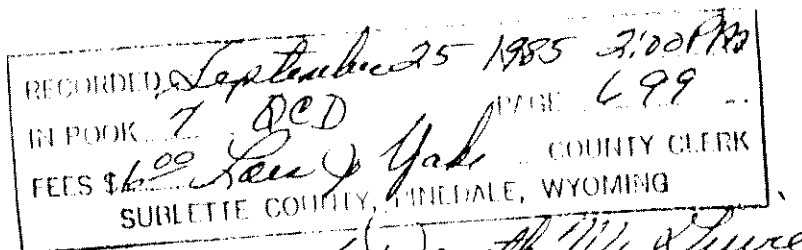 RECORDED September 25 1985 2:00 PM
IN BOOK 7 QCD PAGE 699
FEES $6.00 COUNTY CLERK
SUBLETTE COUNTY, PINEDALE, WYOMING